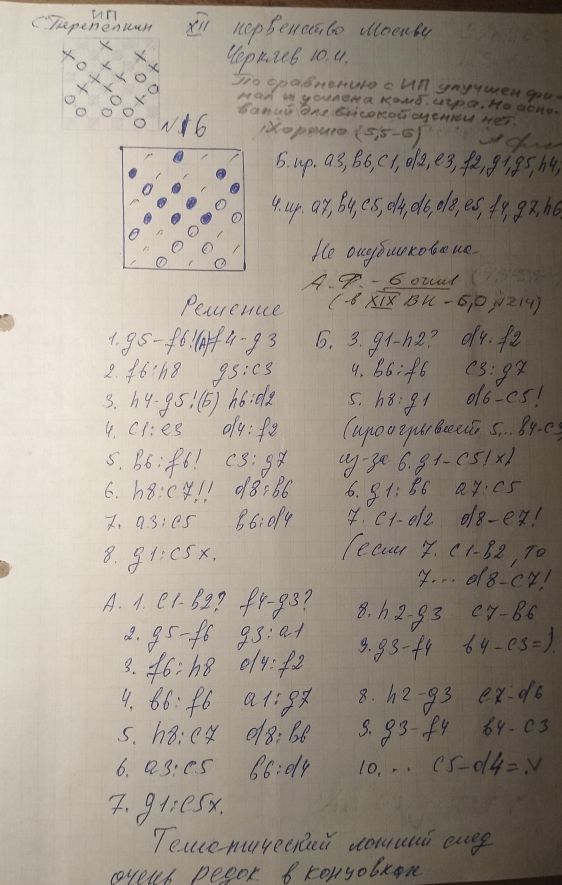 ИП
С. Перепёлкин
XII первенство Москвы
Черняев Ю.И.
По сравнению с ИП улучшен фи-
нал и усилена комб. игра. Но осно-
ваний для высокой оценки нет.
Хорошо (5,5-6)
№16
Б. пр. a3, b6, c1, d2, e3, f2, g1, g5, h4,
Ч. пр. a7, b4, c5, d4, d6, d8, e5, f4, g7, h6,
Не опубликована
А.Ф. - 6 очков
(в XIX ВК - 6,0, №14)
Решение
1. g5-f6!(А) f4-g3
2. f6:h8 g3:c3
3. h4-g5!(Б) h6:d2
4. c1:e3 d4:f2
5. b6:f6! c3:g7
6. h8:c7!! d8:b6
7. a3:c5 b6:d4
8. g1:c5x.
А. 1. c1-b2? f4-g3?
2. g5-f6 g3:a1
3. f6:h8 d4:f2
4. b6:f6 a1:g7
5. h8:c7 d8:b6
6. a3:c5 b6:d4
7. g1:c5x.
Б. 3. g1-h2? d4:f2
4. b6:f6 c3:g7
5. h8:g1 d6-c5!
(проигрывает 5... b4-c3,
из-за 6. g1-c5! x)
6. g1:b6 a7:c5
7. c1-d2 d8-e7!
(если 7. c1-b2, то
7... d8-c7!
8. h2-g3 c7-b6
9. g3-f4 b4-c3=).
8. h2-g3 e7-d6
9. g3-f4 b4-c3
10. ... c5-d4=.
Тематический ложный след
очень редок в концовках